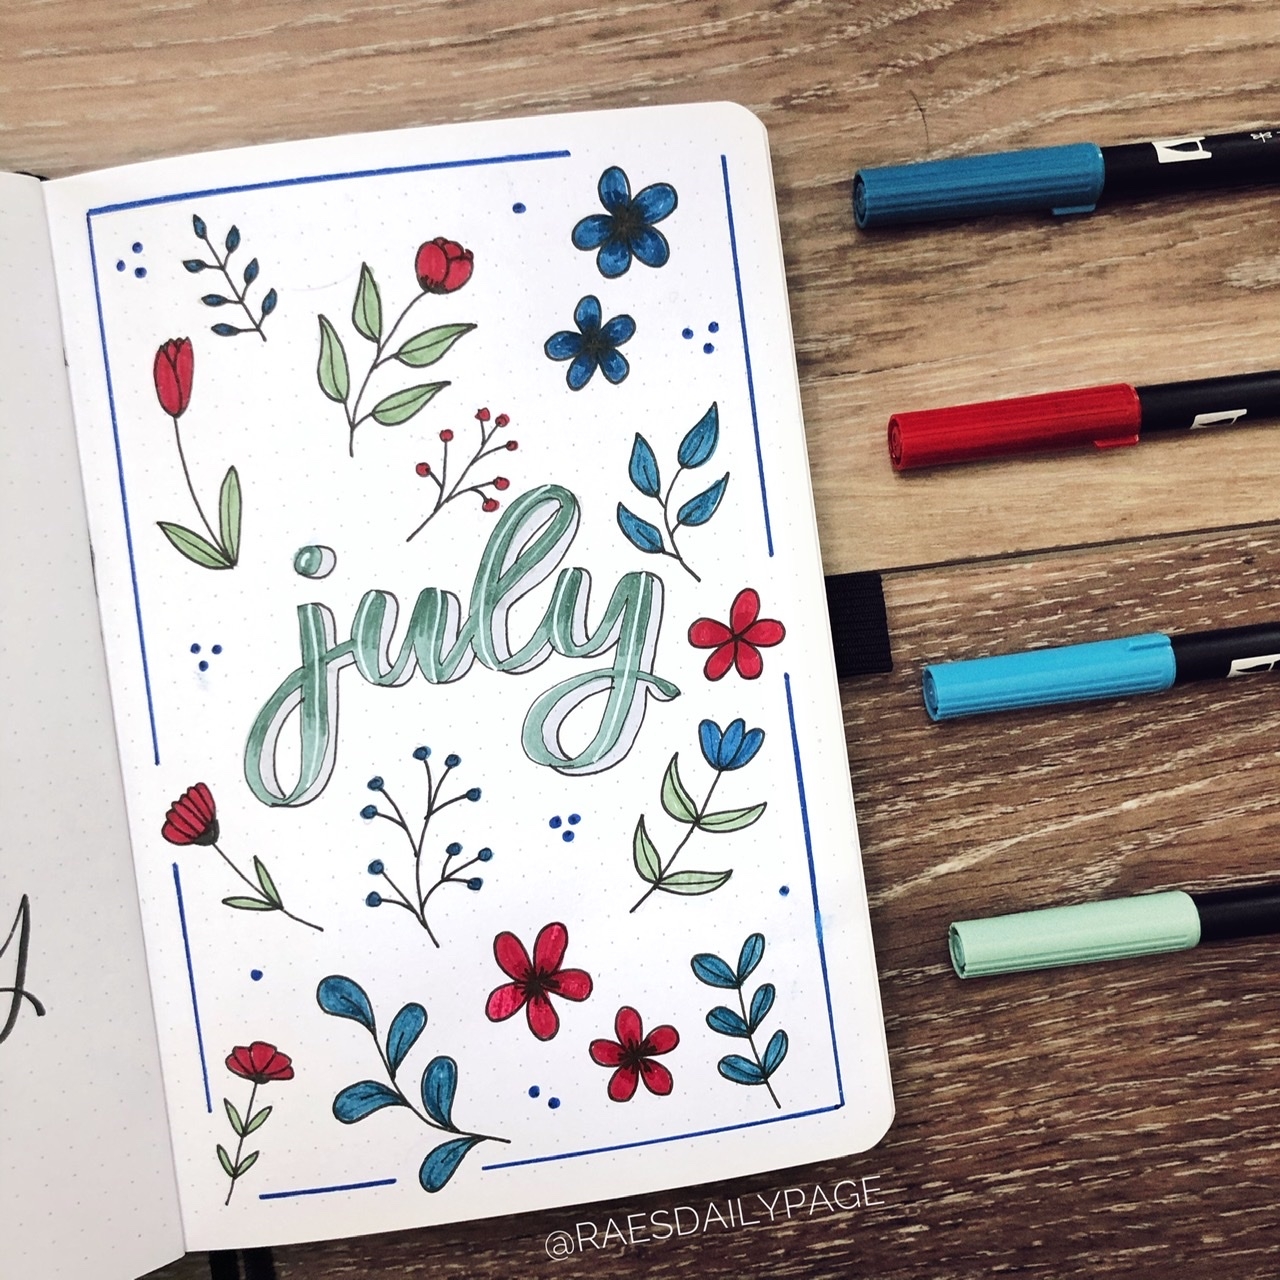 july
@RAESDAILYPAGE